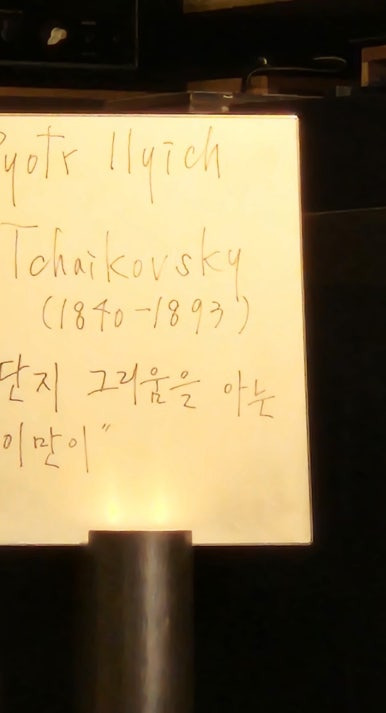 Pyotr Ilyich
Tchaikovsky
(1840-1893)
단지 그리움을 아는
이만이"